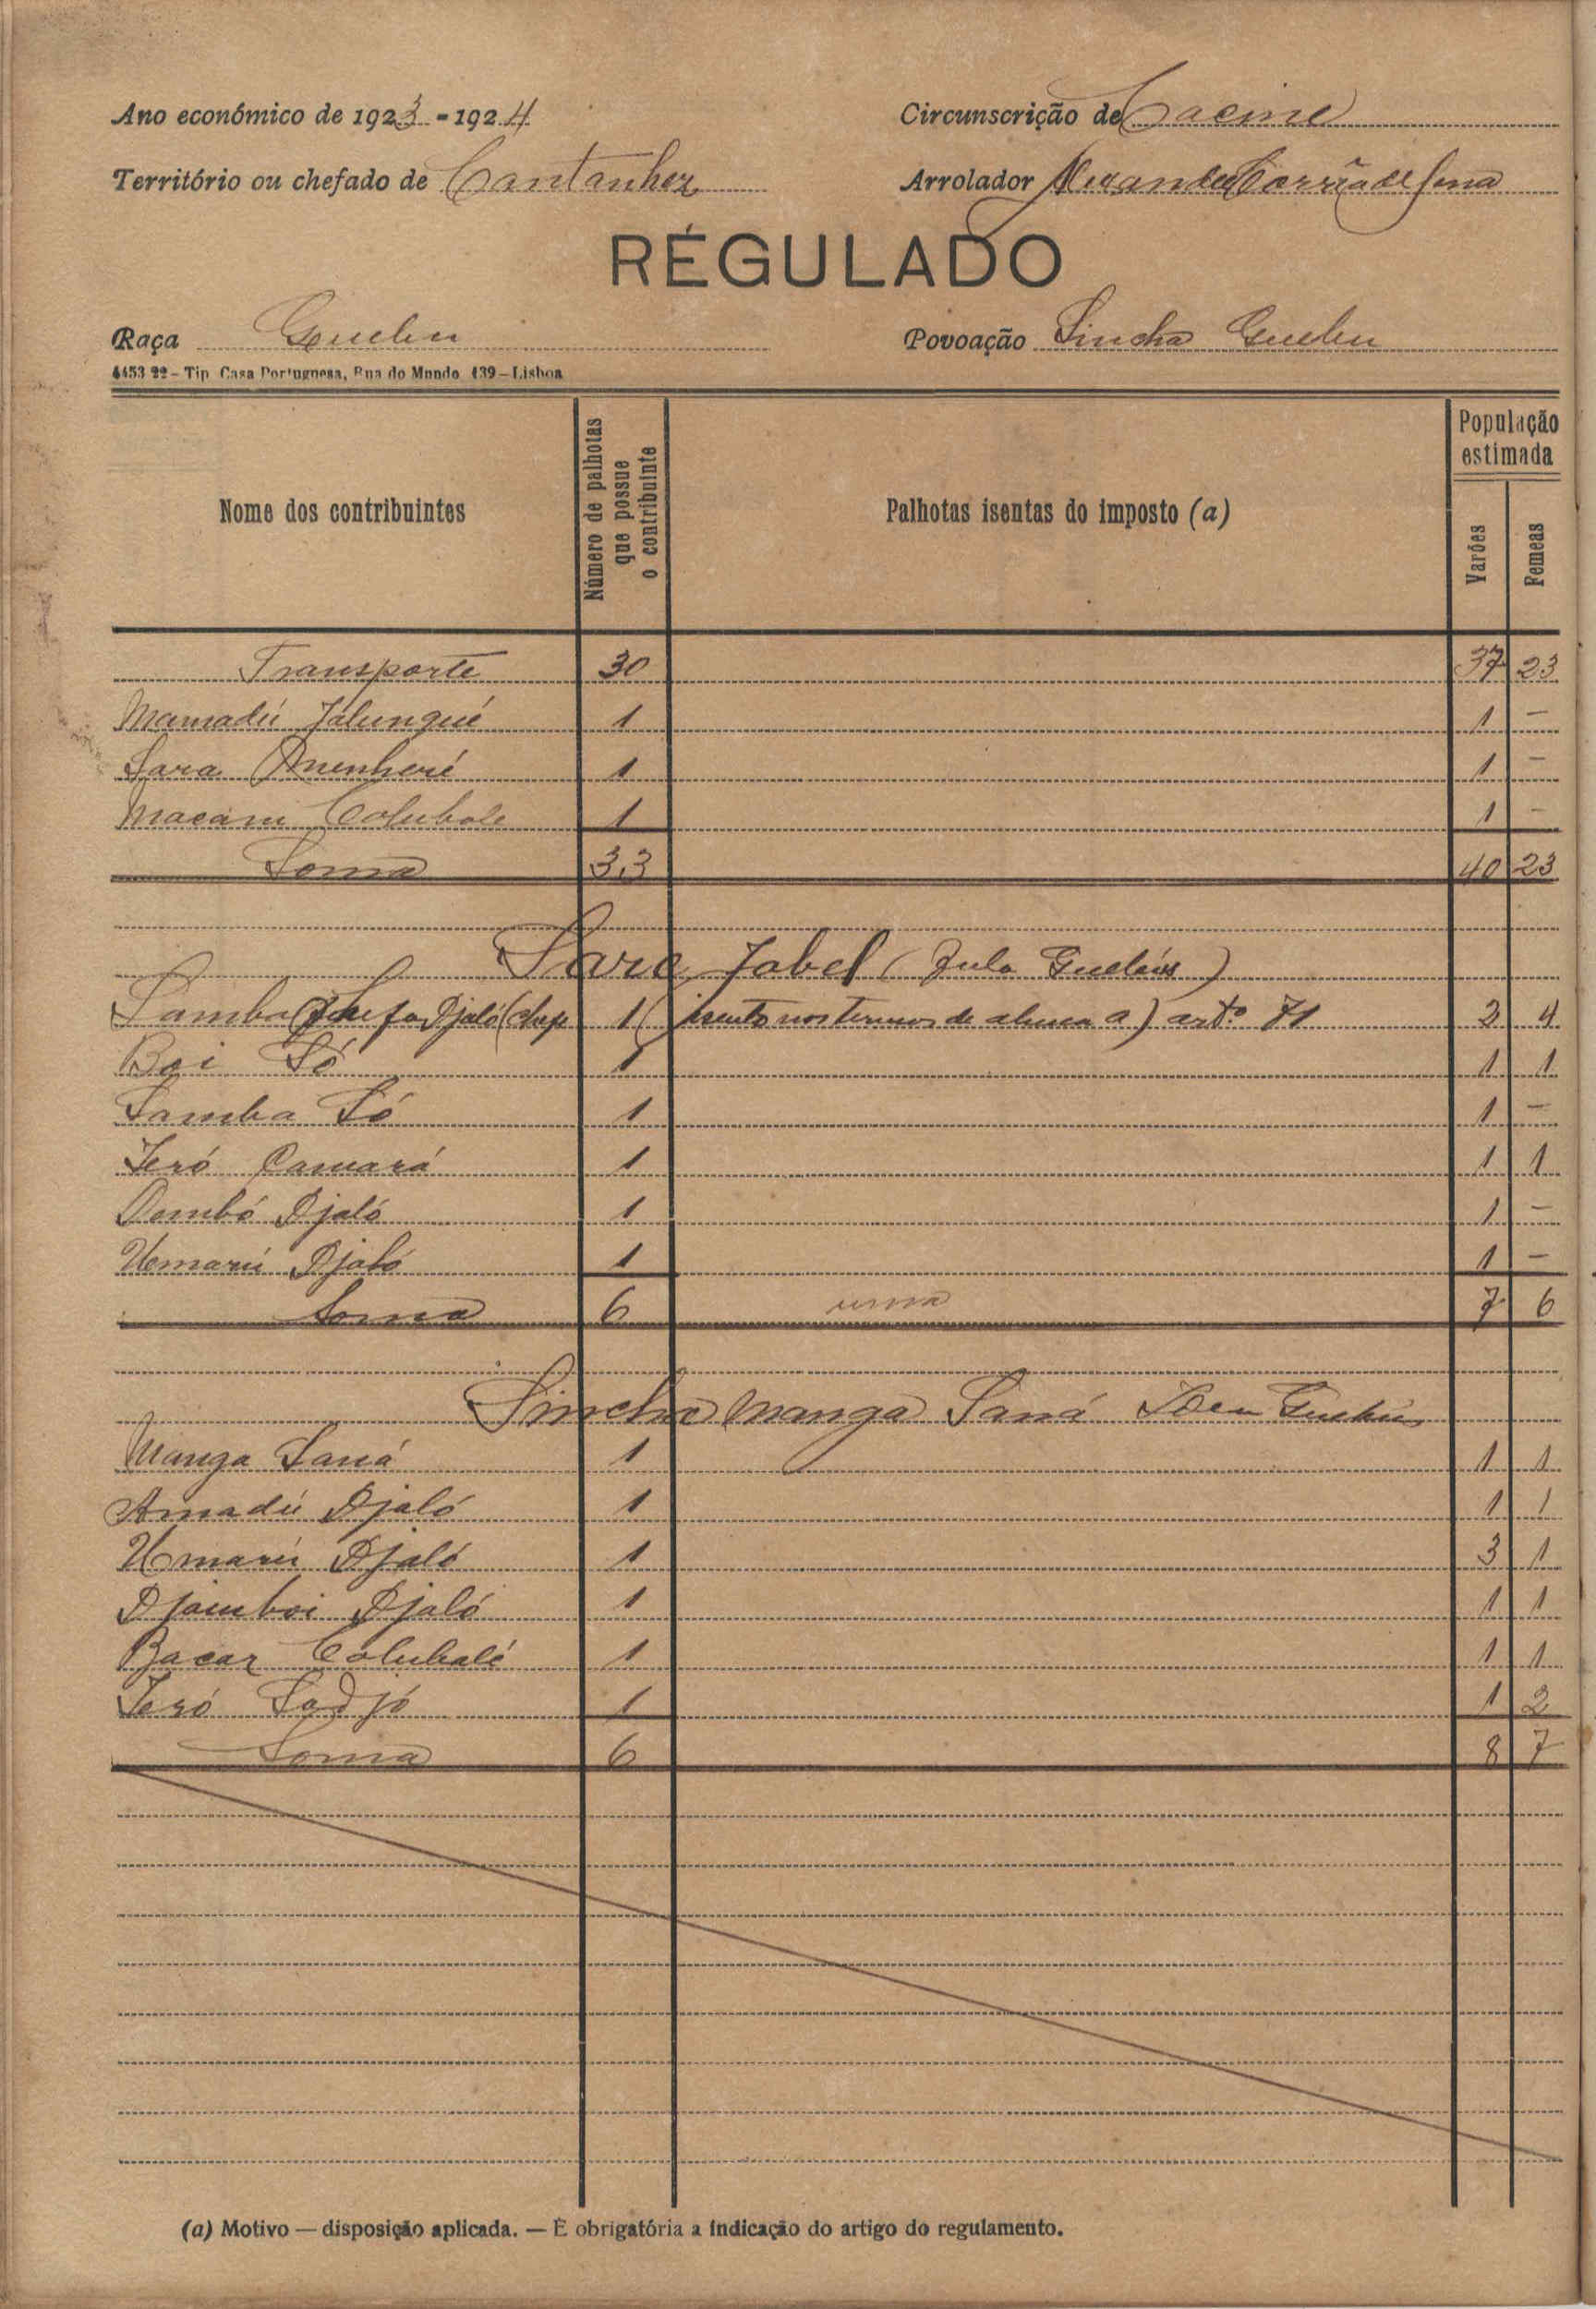 Ano económico de 1923-1924
Circunscrição de Cacine
Território ou chefado de Cantanhez
Arrolador Corrêa de Sena
RÉGULADO
Raça
Povoação Sincha
4453 22 – Tip. Casa Portuguesa, Rua do Mundo 139 – Lisboa
Nome dos contribuintes
Número de palhotas que possue o contribuinte
Palhotas isentas do imposto (a)
População estimada
Varões
Femeas
Transporte 30 37 23
Mamadú Jalunqué 1 1 -
Sara 1 1 -
Macani Colubale 1 1 -
Soma 33 40 23
Sare Jabel (Fula
Samba Djaló 1 (isento nos termos de alinea a) artº 71 2 4
Boi Só 1 1 1
Samba Só 1 1 -
Teró Camará 1 1 1
Dembó Djaló 1 1 -
Umarú Djaló 1 1 -
Soma 6 uma 7 6
Sincha Manga Saná
Manga Saná 1 1 1
Amadú Djaló 1 1 1
Umarú Djaló 1 3 1
Djamboi Djaló 1 1 1
Bacar Colubalé 1 1 1
Teró Sadjó 1 1 2
Soma 6 8 7
(a) Motivo — disposição aplicada. — É obrigatória a indicação do artigo do regulamento.